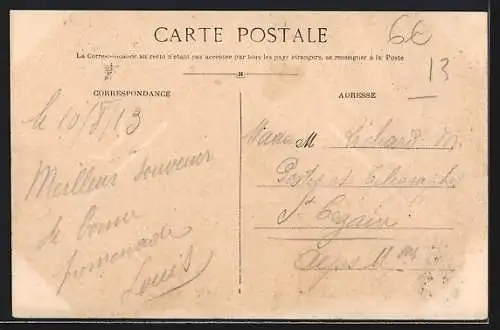 CARTE POSTALE
La Correspondance au recto n'étant pas acceptée par tous les pays étrangers, se renseigner à la Poste
66
13
CORRESPONDANCE
ADRESSE
le 10/8/13
Meilleur souvenir
de bonne
promenade
Louis
Madame Richard M.
Postes et Télégraphes
St Cézaire
Alpes Mmes